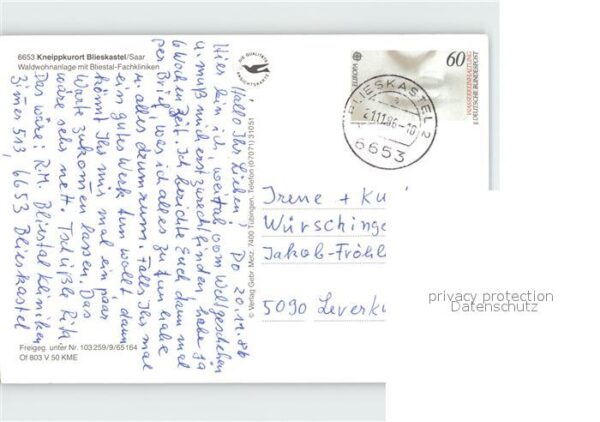 6653 Kneippkurort Blieskastel/Saar
Waldwohnanlage mit Bliestal-Fachkliniken
DIE QUALITÄTS
ANSICHTSKARTE
Do 20.11.86
Hallo Ihr Lieben!
Hier bin ich, weitab vom Weltgeschehen
u. muß mich erst zurechtfinden, habe ja
6 Wochen Zeit. Ich berichte Euch dann mal
per Brief, was ich alles zu tun habe
u. alles drumrum. Falls Ihr mal
ein gutes Werk tun wollt, dann
könnt Ihr mir mal ein paar
Worte zukommen lassen. Das
wäre sehr nett. Tschüßle Rita
Das wäre: R.M. Bliestal Kliniken
Zimmer 513, 6653 Blieskastel
Freigeg. unter Nr. 103259/9/65164
Of 803 V 50 KME
© Verlag Gebr. Metz, 7400 Tübingen, Telefon (07071) 31051
EUROPA
60
DEUTSCHE BUNDESPOST
BLIESKASTEL 2
21.11.86-10
6653
Irene +
Würschinge
Jakob-Fröhl
5090 Leverku
privacy protection
Datenschutz